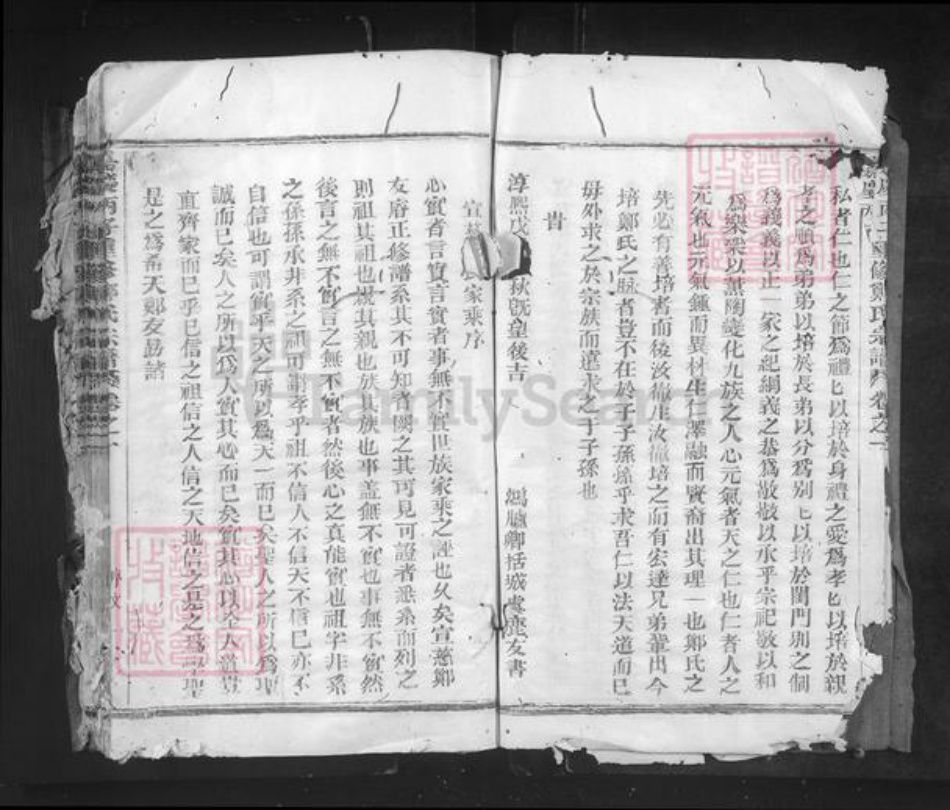 私者仁也仁之節爲禮匕以培於身禮之愛爲孝匕以培於親
孝之順爲弟弟以培於長弟以分爲别匕以培於閨門别之制
爲義義以正一家之紀綱義之恭爲敬敬以承乎宗祀敬以和
爲樂樂以薰陶變化九族之人心元氣者天之仁也仁者人之
元氣也元氣鍾而異材生仁澤融而賢裔出其理一也鄭氏之
先必有善培者而後汝徽生汝徽培之而有宏達兄弟輩出今
培鄭氏之脉者豈不在於子子孫孫乎求吾仁以法天道而已
毋外求之於宗族而遠求之于子孫也
昔
淳熙戊 秋旣望後吉 鴻臚卿括城 鹿友書
宣 家乘序
心實者言實言實者事無不實世族家乘之誣也久矣宣慈鄭
友 正修譜系其不可知者闕之其可見可證者派系而列之
則祖其祖也親其親也族其族也事蓋無不實也事無不實然
後言之無不實言之無不實者然後心之真能實也祖字非系
之係孫承非系之祖可謂孝乎祖不信人不信天不信已亦不
自信也可謂實乎天之所以爲天一而已矣聖人之所以爲聖
誠而已矣人之所以爲人實其心而已矣實其心以全人道
直齊家而已乎已信之祖信之人信之天地信之是之爲
是之爲希天鄭友勗諸
FamilySearch